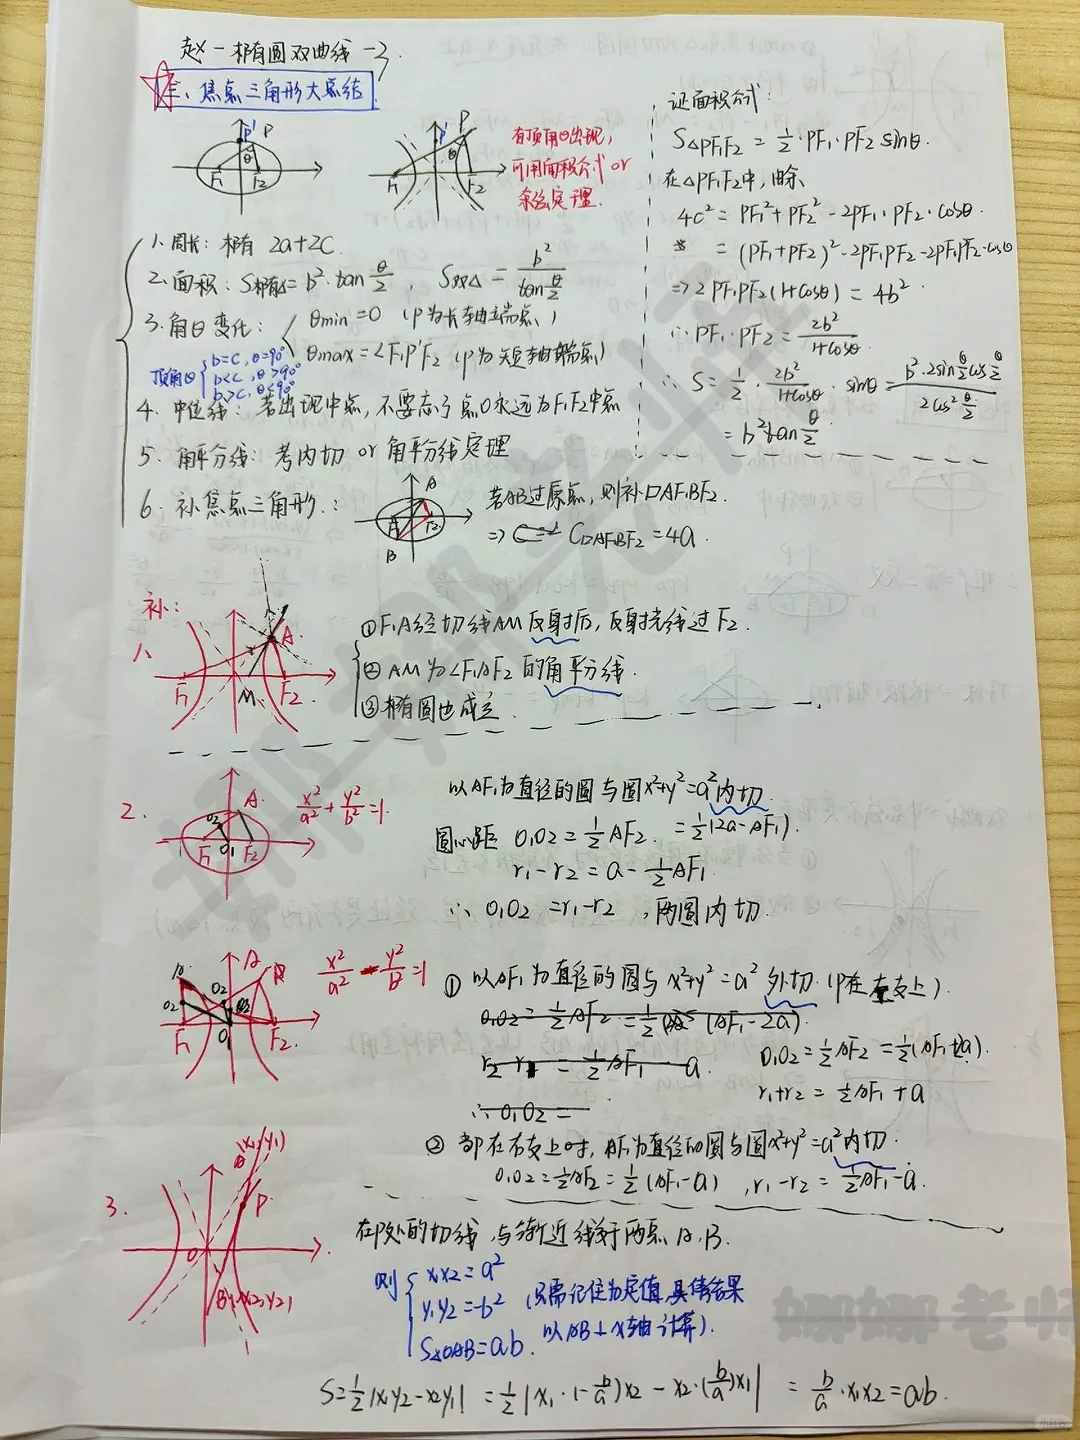 一椭圆双曲线一
三、焦点三角形大总结
P' P
θ
F1 F2
P' P
θ
F1 F2
有顶角θ出现,
可用面积公式 or
余弦定理.
1. 周长: 椭有 2a+2C.
2. 面积: S椭△= b²·tan θ/2 , S双△ = b²/tan θ/2
3. 角θ变化: θmin =0 (P为长轴端点)
θmax = ∠F1P'F2 (P为短轴端点)
顶角θ b=c, θ=90°
b<c, θ>90°
b>c, θ<90°
4. 中位线: 若出现中点, 不要忘了点O永远为F1F2中点
5. 角平分线: 考内切 or 角平分线定理
6. 补焦点三角形.:
A
F2
B
若AB过原点, 则补□AF1BF2.
=> C□AF1BF2 = 4a.
证面积公式:
S△PF1F2 = 1/2·PF1·PF2 sinθ.
在△PF1F2中, 由余
4c² = PF1²+PF2²-2PF1·PF2·cosθ.
= (PF1+PF2)²-2PF1PF2-2PF1PF2·cosθ
=> 2PF1PF2(1+cosθ) = 4b².
∴ PF1·PF2 = 2b²/1+cosθ.
∴ S= 1/2 · 2b²/1+cosθ · sinθ = b²·2sin θ/2 cos θ/2 / 2cos² θ/2
= b²tan θ/2
补:
1.
A
F1 M F2
①F1A经切线AM反射后, 反射光线过F2.
②AM为∠F1AF2的角平分线.
③椭圆也成立.
2.
A
O2
F1 O1 F2
x²/a² + y²/b² =1.
以AF1为直径的圆与圆x²+y²=a²内切.
圆心距 O1O2 = 1/2 AF2. = 1/2(2a-AF1).
r1-r2 = a - 1/2AF1.
∴ O1O2 =r1-r2 , 两圆内切.
A A
O2 O2
F1 O1 F2.
x²/a² - y²/b² =1
① 以AF1为直径的圆与x²+y²=a²外切. (P在左支上).
O1O2 = 1/2AF2 = 1/2 (AF1-2a).
= 1/2AF1 - a.
∴ O1O2 =
O1O2=1/2AF2 =1/2(AF1+2a).
r1+r2 = 1/2AF1 + a
② 都在右支上时, AF1为直径的圆与圆x²+y²=a²内切.
O1O2=1/2AF2 = 1/2 (AF1-a) , r1-r2 = 1/2AF1-a.
3.
(x1,y1)
P
O
B (x2,y2)
在P处的切线, 与渐近线交于两点A, B.
则 x1x2 = a²
y1y2 = -b²
S△OAB = ab.
(只需记住为定值, 具体结果
以AB⊥x轴计算).
S=1/2|x1y2-x2y1| = 1/2|x1·(-b/a)x2 - x2·(b/a)x1| = b/a·x1x2 = ab.
娜娜老师
娜娜老师